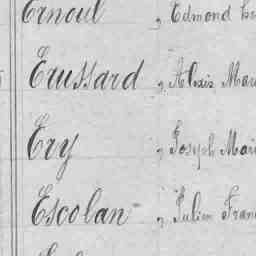 Ernoul „ Edmond
Erussard „ Alexis Mari
Ery „ Joseph Mari
Escolan „ Julien Fran